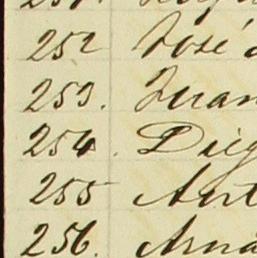 252 José
253. Juan
254. Dieg
255 Ant
256.